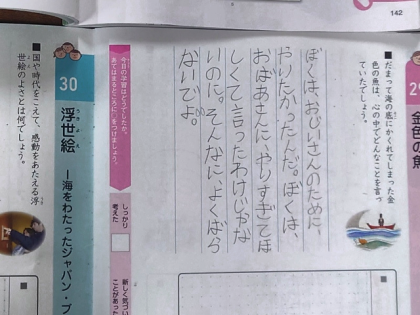 142
29
金色の魚
■だまって海の底にかくれてしまった金
色の魚は、心の中でどんなことを言っ
ていたでしょう。
ぼくは、おじいさんのために、
やりたかったんだ。ぼくは、
おばあさんに、やりすぎてほ
しくて言ったわけじゃな
いのに。そんなに、よくばら
ないでよ。
今日の学習はどうでしたか。
あてはまるところに○をつけましょう。
しっかり
考えた
新しく気づい
ことがあった
30
浮世絵
うきよえ
―海をわたったジャパン・ブ
■国や時代をこえて、感動をあたえる浮
世絵のよさとは何でしょう。